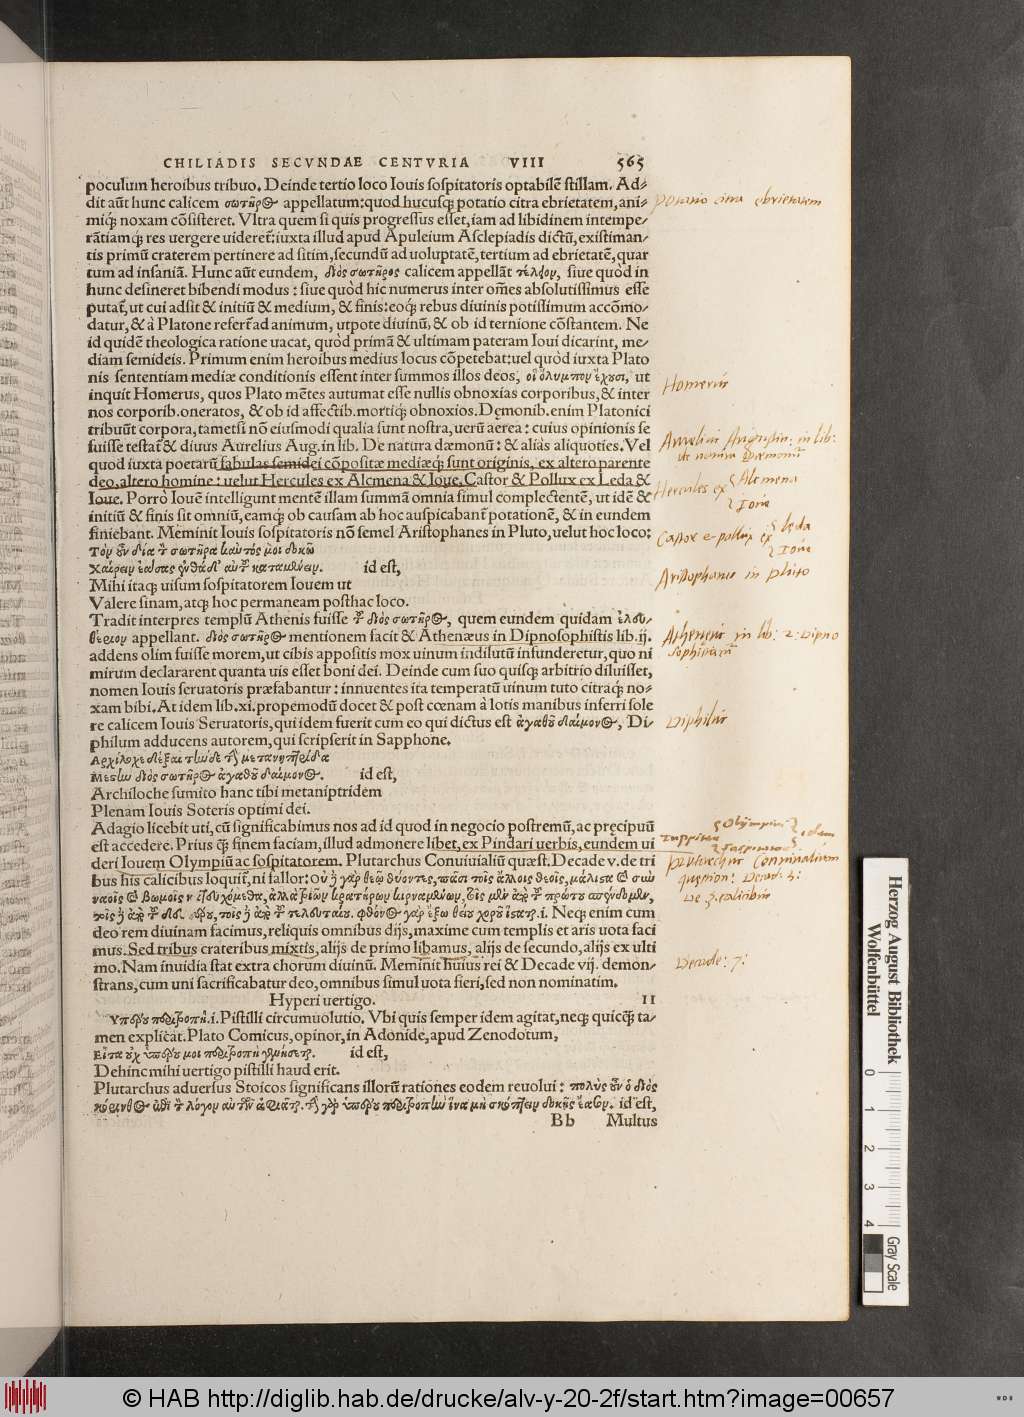 CHILIADIS SECVNDAE CENTVRIA VIII 565
poculum heroibus tribuo. Deinde tertio loco Iouis sospitatoris optabilē stillam. Ad-
dit aūt hunc calicem σωτῆρος appellatum: quod hucusq́ꝫ potatio citra ebrietatem, ani-
miq́ꝫ noxam cōsisteret. Vltra quem si quis progressus esset, iam ad libidinem intempe-
rātiamq́ꝫ res uergere uideret̄: iuxta illud apud Apuleium Asclepiadis dictū, existiman-
tis primū craterem pertinere ad sitim, secundū ad uoluptatē, tertium ad ebrietatē, quar
tum ad insaniā. Hunc aūt eundem, διὸς σωτῆρος calicem appellāt τέλειον, siue quòd in
hunc desineret bibendi modus: siue quòd hic numerus inter oēs absolutissimus esse
putat̄, ut cui adsit & initiū & medium, & finis: eoq́ꝫ rebus diuinis potissimum accōmo-
datur, & à Platone refert̄ ad animum, utpote diuinū, & ob id ternione cōstantem. Ne
id quidē theologica ratione uacat, quòd primā & ultimam pateram Ioui dicarint, me-
diam semideis. Primum enim heroibus medius locus cōpetebat: uel quòd iuxta Plato
nis sententiam mediæ conditionis essent inter summos illos deos, οἳ ὄλυμπον ἔχουσι, ut
inquit Homerus, quos Plato mētes autumat esse nullis obnoxias corporibus, & inter
nos corporib. oneratos, & ob id affectib. mortiq́ꝫ obnoxios. Dęmonib. enim Platonici
tribuūt corpora, tametsi nō eiusmodi qualia sunt nostra, uerū aerea: cuius opinionis se
fuisse testat̄ & diuus Aurelius Aug. in lib. De natura dæmonū: & aliàs aliquoties. Vel
quod iuxta poetarū fabulas semidei cōpositæ mediæq́ꝫ sunt originis, ex altero parente
deo, altero homine: uelut Hercules ex Alcmena & Ioue. Castor & Pollux ex Leda &
Ioue. Porrò Iouē intelligunt mentē illam summā omnia simul complectentē, ut idē &
initiū & finis sit omniū, eamq́ꝫ ob causam ab hoc auspicabant̄ potationē, & in eundem
finiebant. Meminit Iouis sospitatoris nō semel Aristophanes in Pluto, uelut hoc loco:
Τὸν οὖν δία τὸν σωτῆρα καὐτός μοι δοκῶ
Χαίρειν ἐάσας ἐνθάδ' αὐτοῦ καταμένειν. id est,
Mihi itaqꝫ uisum sospitatorem Iouem ut
Valere sinam, atqꝫ hoc permaneam posthac loco.
Tradit interpres templū Athenis fuisse τοῦ διὸς σωτῆρος, quem eundem quidam ἐλευ-
θέριον appellant. διὸς σωτῆρος mentionem facit & Athenæus in Dipnosophistis lib. ij.
addens olim fuisse morem, ut cibis appositis mox uinum indilutū infunderetur, quo ni
mirum declararent quanta uis esset boni dei. Deinde cum suo quisqꝫ arbitrio diluisset,
nomen Iouis seruatoris præfabantur: innuentes ita temperatū uinum tuto citraq́ꝫ no-
xam bibi. At idem lib. xi. propemodū docet & post cœnam à lotis manibus inferri sole
re calicem Iouis Seruatoris, qui idem fuerit cum eo qui dictus est ἀγαθοῦ δαίμονος, Di-
philum adducens autorem, qui scripserit in Sapphone.
Αρχίλοχε δέξαι τὴν δὲ τὴν μετανιπτρίδα
Μεστὴν διὸς σωτῆρος ἀγαθοῦ δαίμονος. id est,
Archiloche sumito hanc tibi metaniptridem
Plenam Iouis Soteris optimi dei.
Adagio licebit uti, cū significabimus nos ad id quod in negocio postremū, ac pręcipuū
est accedere. Prius q̃ꝫ finem faciam, illud admonere libet, ex Pindari uerbis, eundem ui
deri Iouem Olympiū ac sospitatorem. Plutarchus Conuiuialiū quæst. Decade v. de tri
bus his calicibus loquit̄, ni fallor:
deo rem diuinam facimus, reliquis omnibus dijs, maxime cum templis et aris uota faci
mus. Sed tribus crateribus mixtis, alijs de primo libamus, alijs de secundo, alijs ex ulti
mo. Nam inuidia stat extra chorum diuinū. Meminit huius rei & Decade vij. demon-
strans, cum uni sacrificabatur deo, omnibus simul uota fieri, sed non nominatim.
Hyperi uertigo. II
Υπέρου περιτροπή. i. Pistilli circumuolutio. Vbi quis semper idem agitat, neqꝫ quicq̃ꝫ ta-
men explicat. Plato Comicus, opinor, in Adonide, apud Zenodotum,
Εἶτα οὐχ ὑπέρου μοι περιτροπὴ γενήσεται. id est,
Dehinc mihi uertigo pistilli haud erit.
Plutarchus aduersus Stoicos significans illorū rationes eodem reuolui: πολὺς οὖν ὁ διὸς
id est,
Bb Multus
potatio citra ebrietatem
Homerus
Aurelius Augustin: in lib:
de natura Dæmonū
Hercules ex Alcmena
Ioue
Castor & pollux ex Leda
Ioue
Aristophanes in pluto
Atheneus in lib: 2: Dipno
sophistarū
Diphilus
Iuppiter Olympius idem
Plutarchus Conviualium
question: Decad: 5:
De 3. calicibus
Decade: 7:
Herzog August Bibliothek
Wolfenbüttel
0 1 2 3 4
Gray Scale
© HAB http://diglib.hab.de/drucke/alv-y-20-2f/start.htm?image=00657